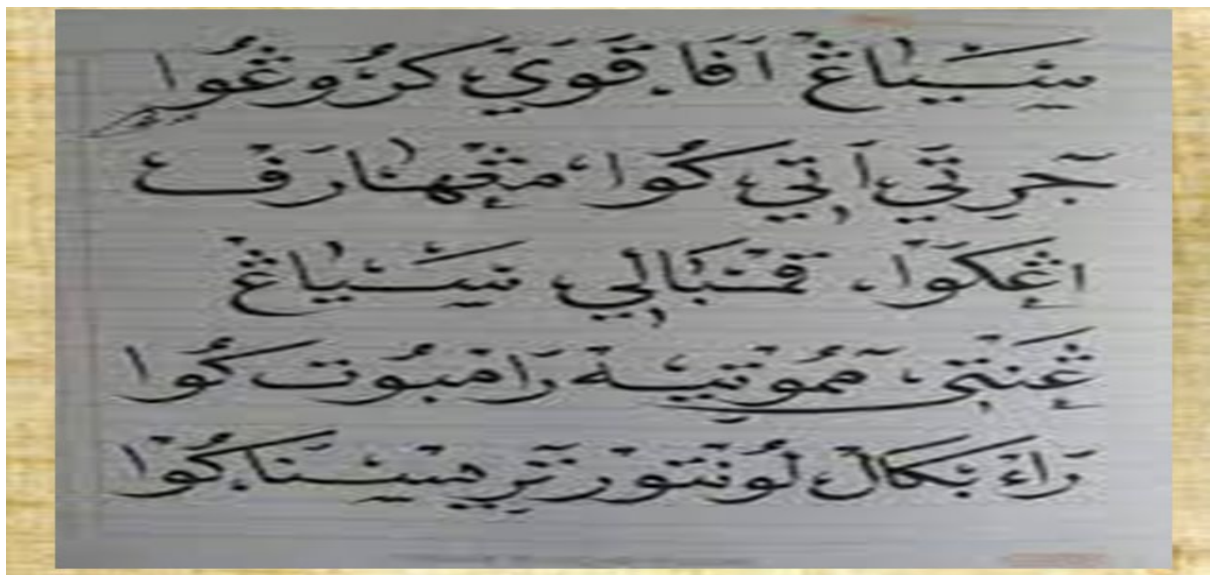 سَيَاڠْ آفَا قَوَيْ كرُوڠُوا
جٓرِتَيْ اَتِيْ كُوا، مڠْهارَفْ
اڠكَوْا، قمْبَالِي سَيَاڠْ
ڠَنْتِي، ممُوتِيهْ رَامْبُوتْ كُوا
رَاءْ بَكَالْ لُونْتُورْ تَرِيسْنَا كُوا